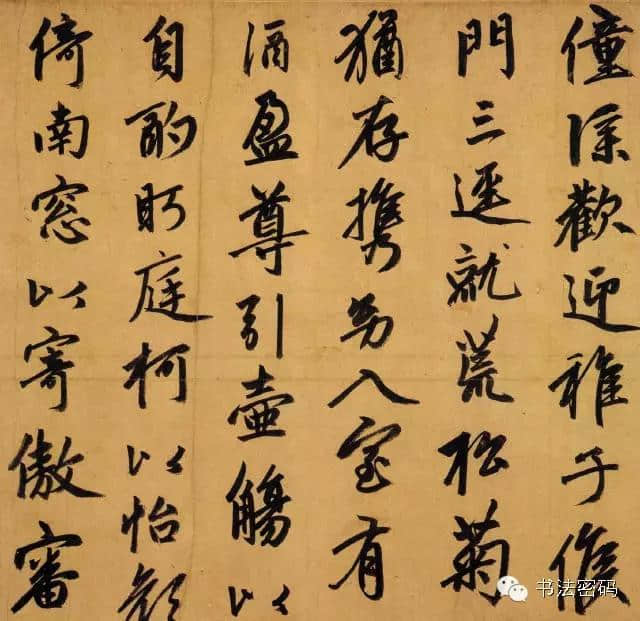 僮僕歡迎稚子候
門三逕就荒松菊
猶存携幼入室有
酒盈尊引壺觴以
自酌眄庭柯以怡顔
倚南窓以寄傲審
书法密码